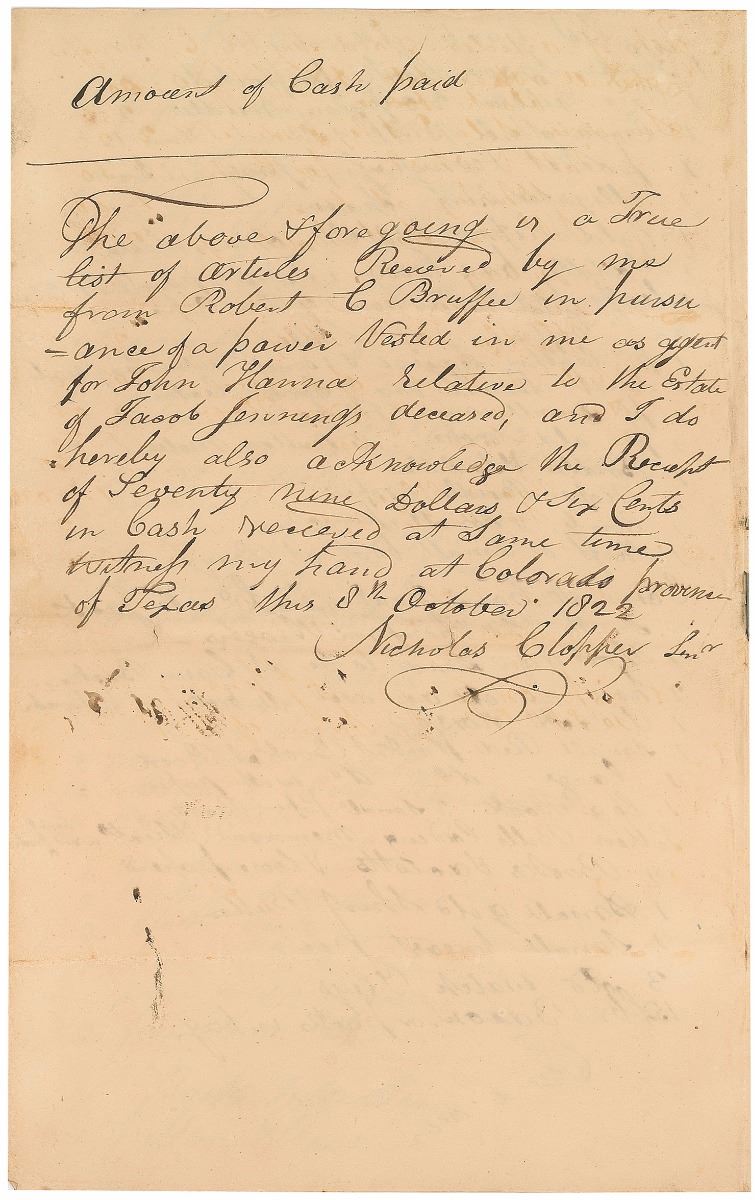 Amount of Cash paid
The above & foregoing is a True
list of articles Recieved by me
from Robert C Bruffee in pursu
-ance of a power Vested in me as agent
for John Hanna relative to the Estate
of Jacob Jennings deceased, and I do
hereby also acknowledge the Reciept
of Seventy nine Dollars & Six Cents
in Cash recieved at Same time
Witness my hand at Colorado province
of Texas this 8th October 1822
Nicholas Clopper Senr